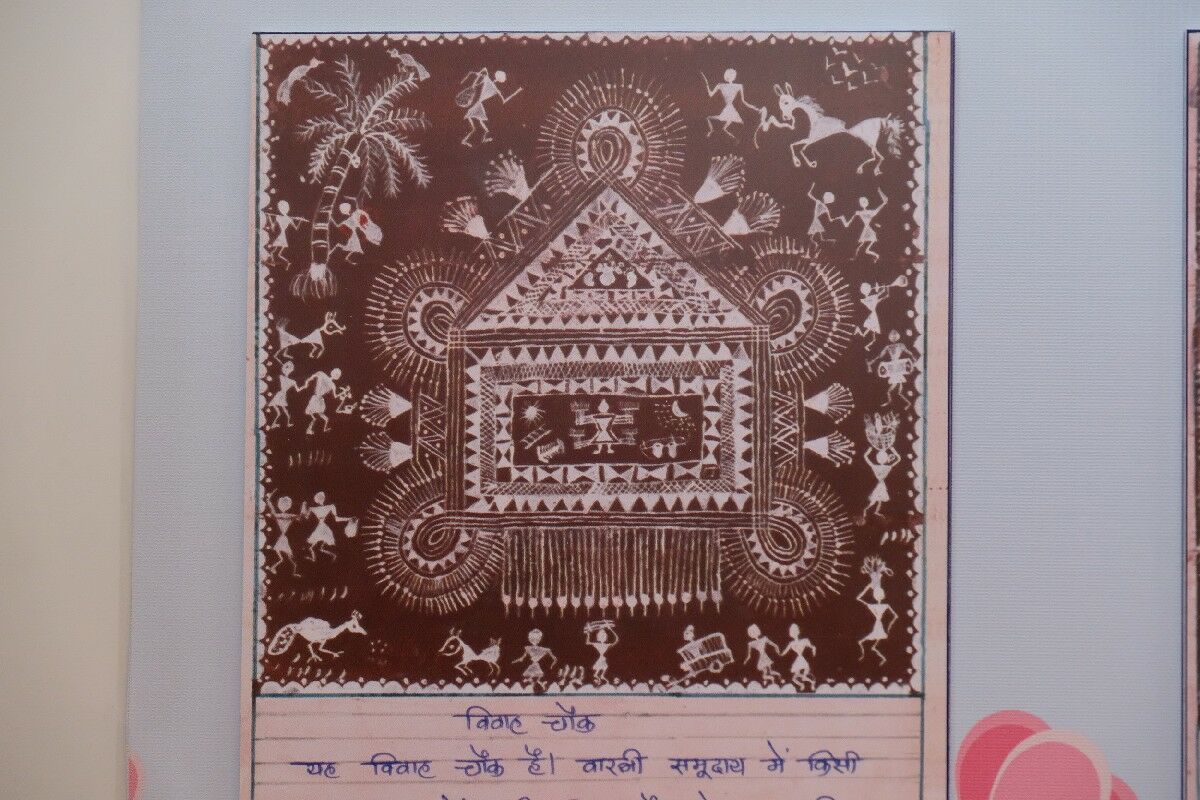 विवाह चौक
यह विवाह चौक है। वारली समूदाय में किसी